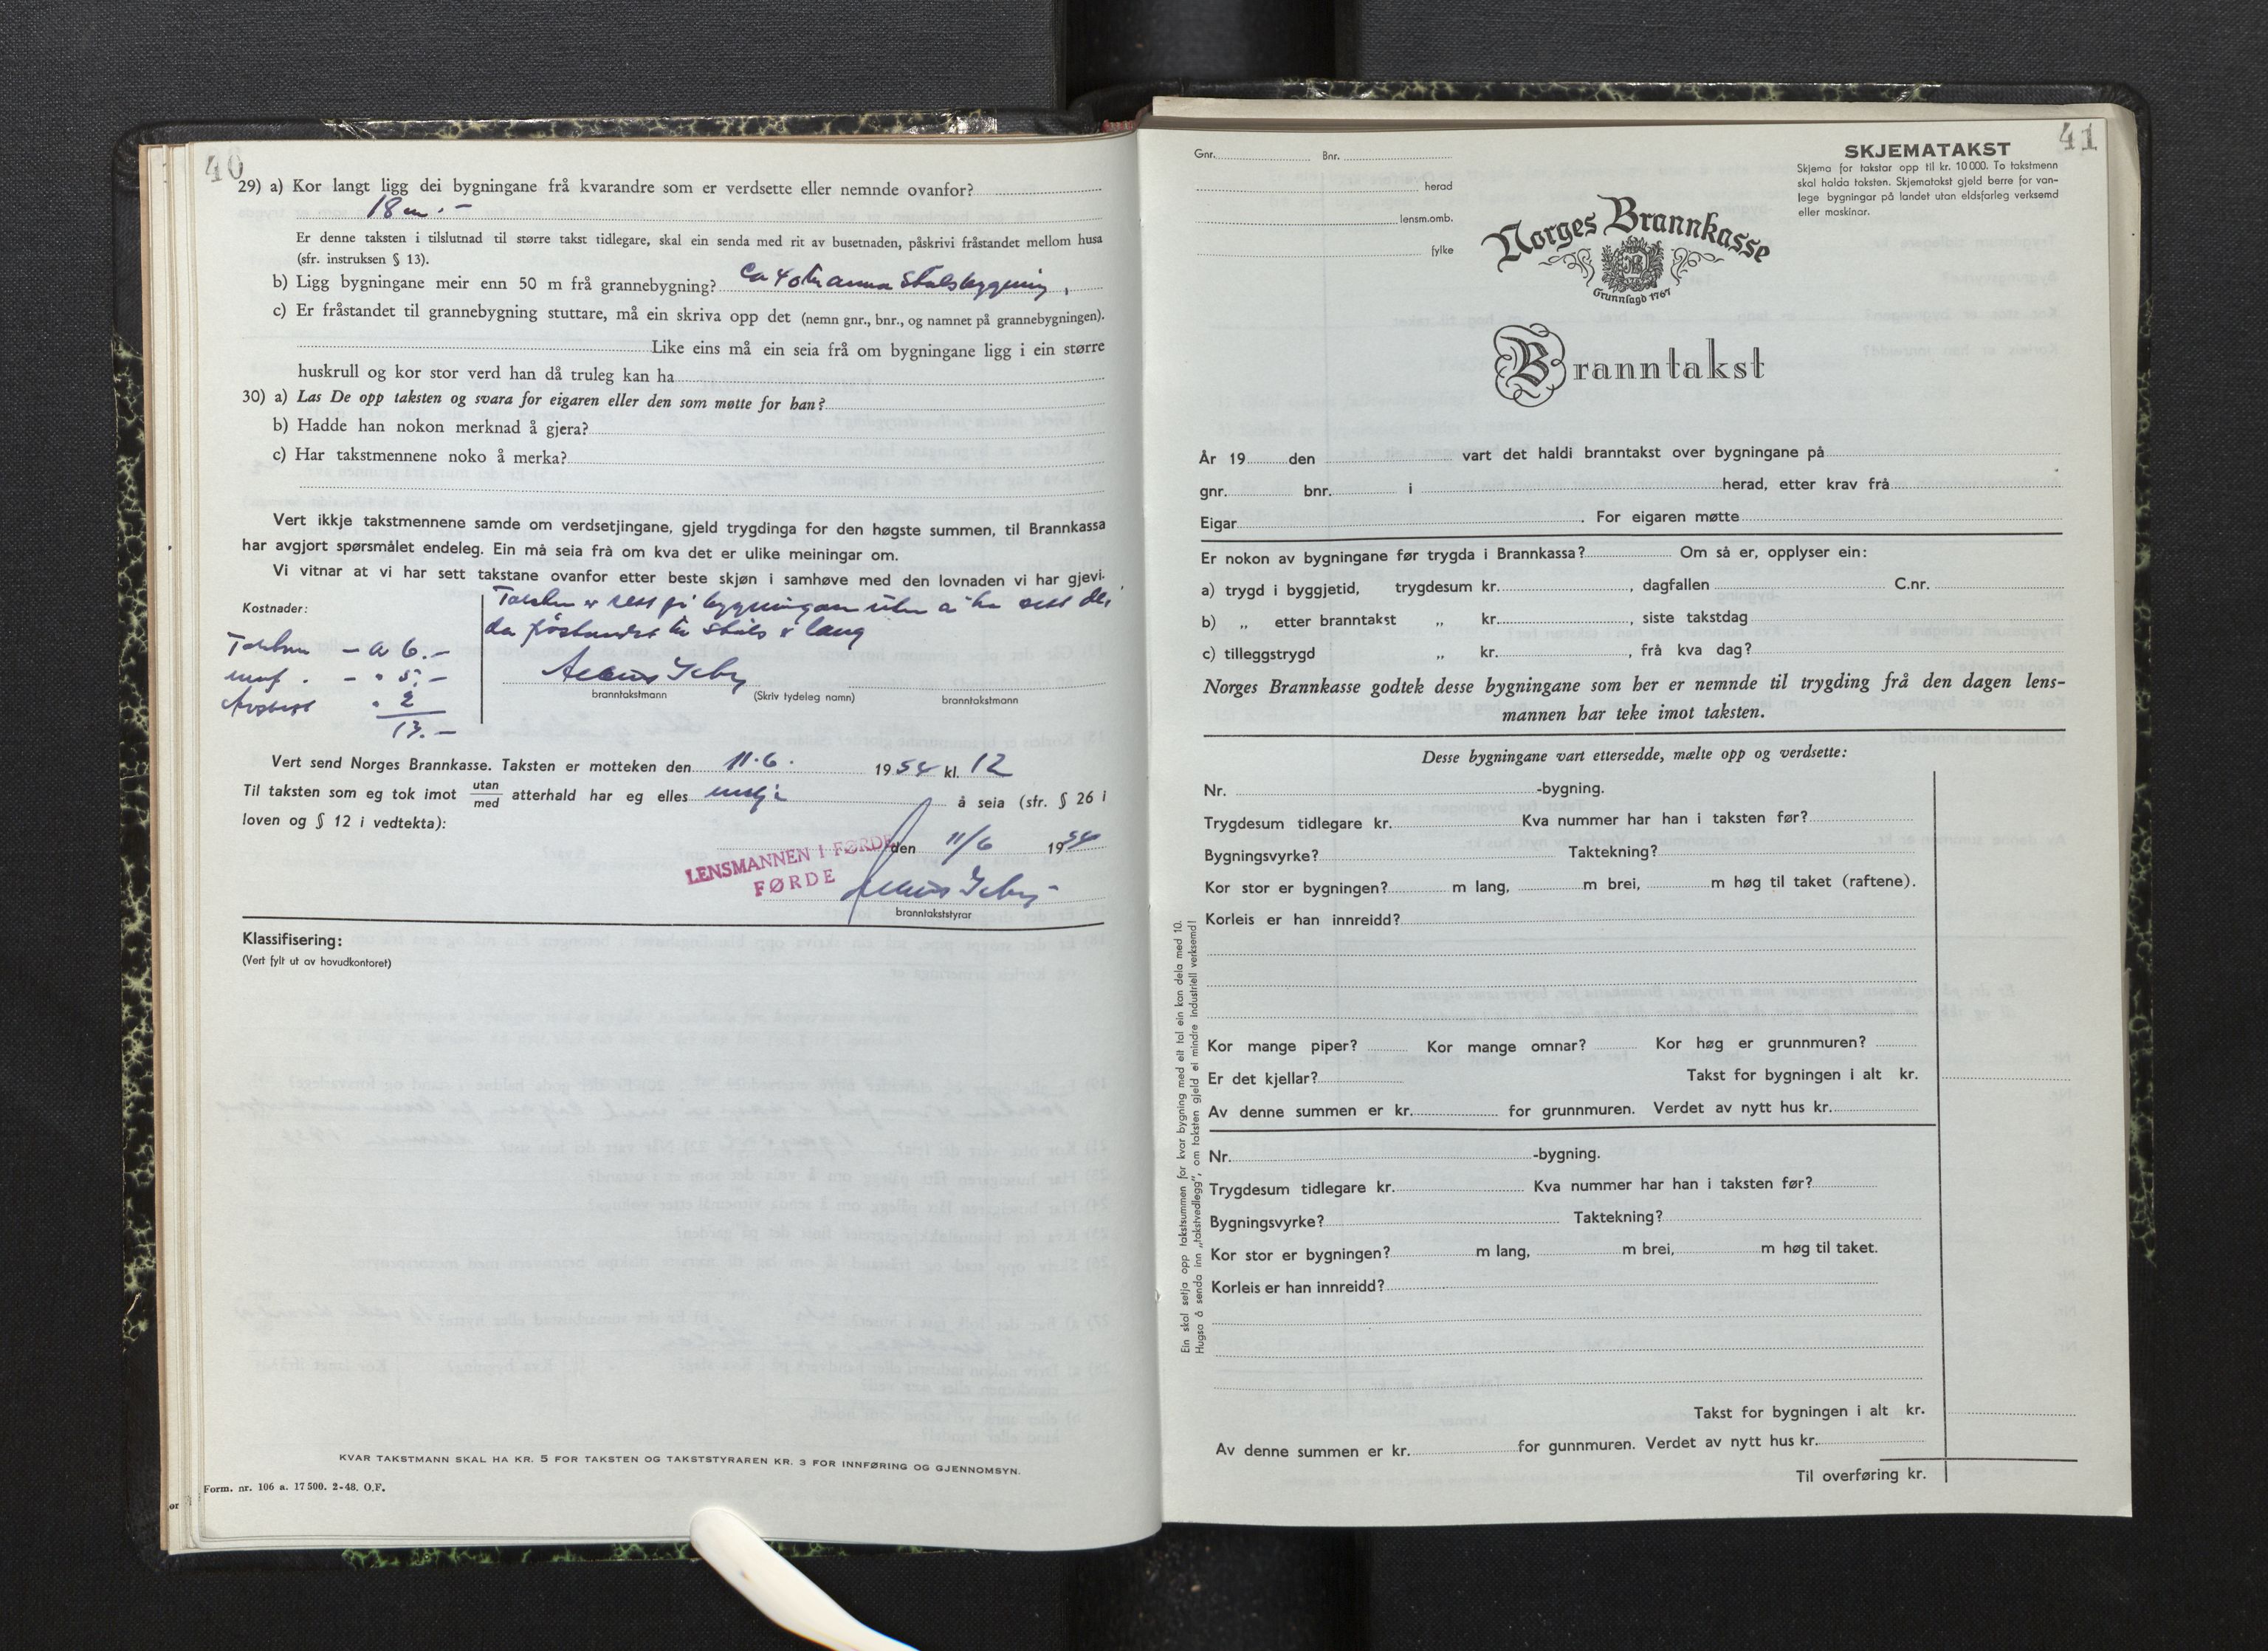 40
29) a) Kor langt ligg dei bygningane frå kvarandre som er verdsette eller nemnde ovanfor?
18 m. -
Er denne taksten i tilslutnad til større takst tidlegare, skal ein senda med rit av busetnaden, påskrivi fråstandet mellom husa
(sfr. instruksen § 13).
b) Ligg bygningane meir enn 50 m frå grannebygning? Ca 40 m anna Stølsbygning,
c) Er fråstandet til grannebygning stuttare, må ein skriva opp det (nemn gnr., bnr., og namnet på grannebygningen).
Like eins må ein seia frå om bygningane ligg i ein større
huskrull og kor stor verd han då truleg kan ha
30) a) Las De opp taksten og svara for eigaren eller den som møtte for han?
b) Hadde han nokon merknad å gjera?
c) Har takstmennene noko å merka?
Vert ikkje takstmennene samde om verdsetjingane, gjeld trygdinga for den høgste summen, til Brannkassa
har avgjort spørsmålet endeleg. Ein må seia frå om kva det er ulike meiningar om.
Vi vitnar at vi har sett takstane ovanfor etter beste skjøn i samhøve med den lovnaden vi har gjevi.
Taksten er sett på bygningane uten å ha sett dei
da fråstandet til Støls er lang
Kostnader:
- a 6.-
- " 5.-
" 2
13.-
branntakstmann (Skriv tydeleg namn) branntakstmann
Vert send Norges Brannkasse. Taksten er motteken den 11.6. 1954 kl. 12
Til taksten som eg tok imot utan/med atterhald har eg elles å seia (sfr. § 26 i
loven og § 12 i vedtekta):
LENSMANNEN I FØRDE
FØRDE
den 11/6 1954
branntakststyrar
Klassifisering:
(Vert fylt ut av hovudkontoret)
KVAR TAKSTMANN SKAL HA KR. 5 FOR TAKSTEN OG TAKSTSTYRAREN KR. 3 FOR INNFØRING OG GJENNOMSYN.
Form. nr. 106 a. 17500. 2-48. O.F.
41
Gnr. Bnr.
herad
lensm.omb.
fylke
SKJEMATAKST
Skjema for takstar opp til kr. 10 000. To takstmenn
skal halda taksten. Skjematakst gjeld berre for van-
lege bygningar på landet utan eldsfarleg verksemd
eller maskinar.
Norges Brannkasse
Grunnlagd 1767
Branntakst
År 19 den vart det haldi branntakst over bygningane på
gnr. bnr. i herad, etter krav frå
Eigar . For eigaren møtte
Er nokon av bygningane før trygda i Brannkassa? Om så er, opplyser ein:
a) trygd i byggjetid, trygdesum kr. , dagfallen C.nr.
b) „ etter branntakst „ kr. , siste takstdag
c) tilleggstrygd „ kr. , frå kva dag?
Norges Brannkasse godtek desse bygningane som her er nemnde til trygding frå den dagen lens-
mannen har teke imot taksten.
Desse bygningane vart ettersedde, mælte opp og verdsette:
Nr. -bygning.
Trygdesum tidlegare kr. Kva nummer har han i taksten før?
Bygningsvyrke? Taktekning?
Kor stor er bygningen? m lang, m brei, m høg til taket (raftene).
Korleis er han innreidd?
Kor mange piper? Kor mange omnar? Kor høg er grunnmuren?
Er det kjellar? Takst for bygningen i alt kr.
Av denne summen er kr. for grunnmuren. Verdet av nytt hus kr.
Nr. -bygning.
Trygdesum tidlegare kr. Kva nummer har han i taksten før?
Bygningsvyrke? Taktekning?
Kor stor er bygningen? m lang, m brei, m høg til taket.
Korleis er han innreidd?
Takst for bygningen i alt kr.
Av denne summen er kr. for gunnmuren. Verdet av nytt hus kr.
Til overføring kr.
Ein skal setja opp takstsummen for kvar bygning med eit tal ein kan dela med 10.
Hugsa å senda inn „takstvedlegg", om taksten gjeld ei mindre industriell verksemd!